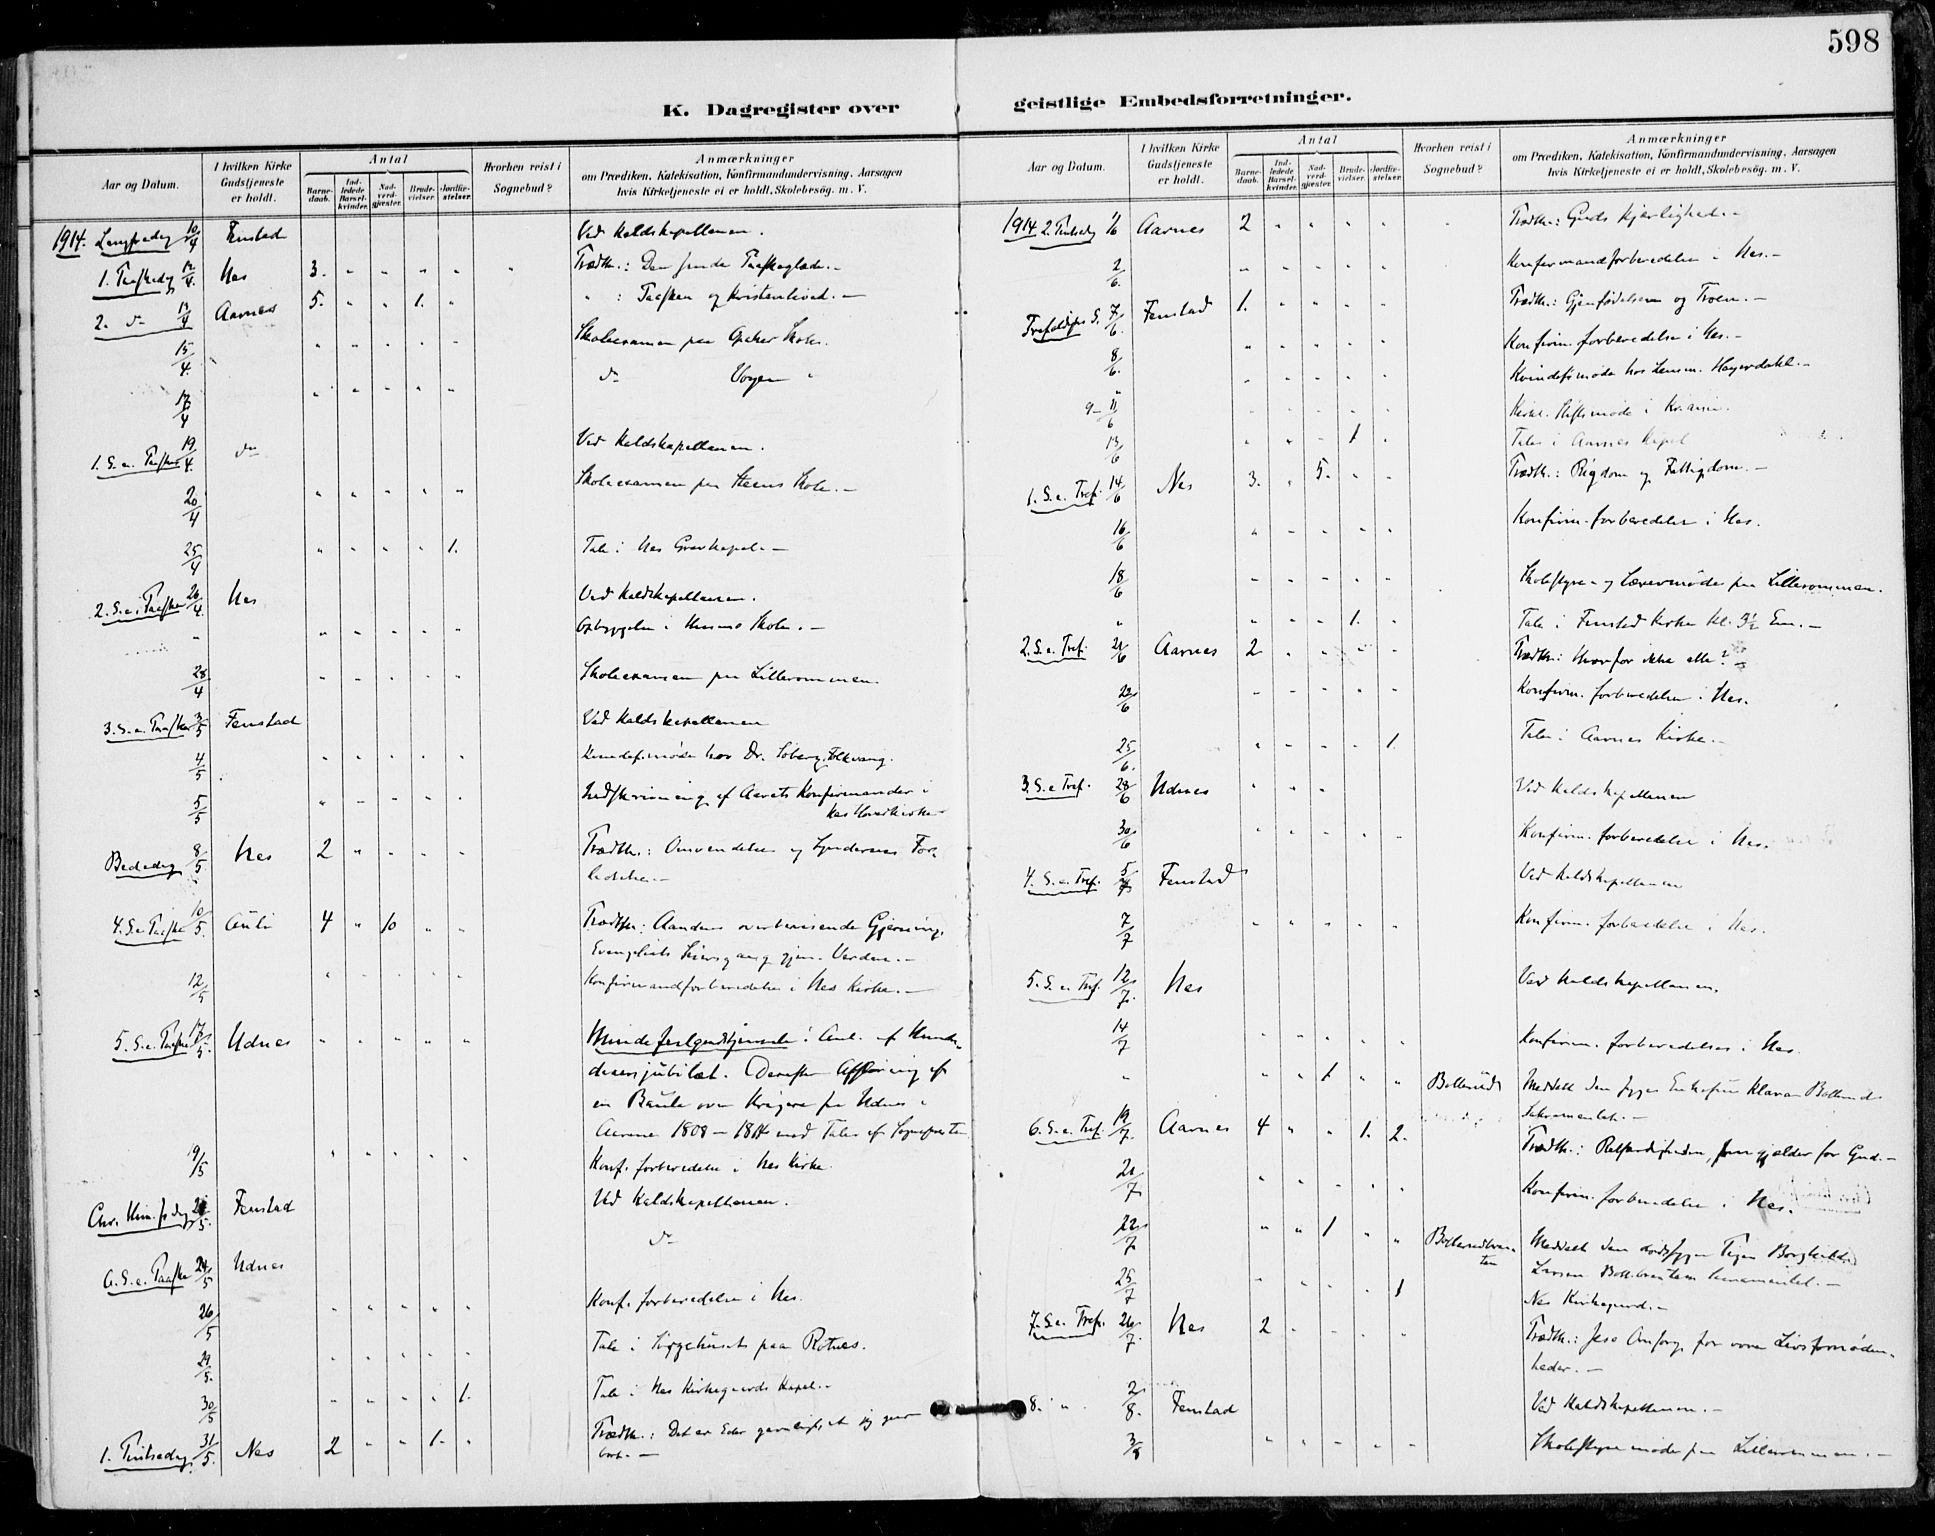 598
K. Dagregister over
Aar og Datum.
I hvilken Kirke Gudstjeneste er holdt.
Antal
Barne-daab.
Ind-ledede Barsel-kvinder.
Nad-verd-gjæster.
Brude-vielser.
Jordfæ-stelser.
Hvorhen reist i Sognebud?
Anmærkninger
om Prædiken, Katekisation, Konfirmandundervisning, Aarsagen
hvis Kirketjeneste ei er holdt, Skolebesøg. m. V.
1914. Langfredag 10/4 Fenstad Ved Kaldskapellanen.
1. Paaskedag 12/4. Nes 3. " " " " " Prædik.: Den Paaskeglæde. —
2. do 13/4 Aarnes 5. " " 1. " " : Paasken og Kristenlivet. —
15/4. " " " " " Skoleexamen paa Opaker Skole.
17/4 " " " " " do Vogen "
1. S. e. Paaske 19/4. do Ved Kaldskapellanen.
20/4 " " " " " Skoleexamen paa Steens Skole. —
25/4 " " " " 1. Tale i Nes Gravkapel. —
2. S. e. Paaske 26/4. Nes Ved Kaldskapellanen.
" " " " " " Opbyggelse i Skole. —
28/4 " " " " " Skoleexamen paa Lilleromunen.
3. S. e. Paaske 3/5 Fenstad Ved Kaldskapellanen
4/5 " " " " " Kvindefsmøde hos Dr. Soberg, Folkvang.
5/5 " " " " " Indskrivning af Aarets Konfirmander i
Nes Hovedkirke
Bededag 8/5 Nes 2 " " " " Prædik.: Omvendelse og Syndernes For-
ladelse. —
4. S. e. Paaske 10/5. Auli 4 " 10 " " Prædik.: Aandens overbevisende Gjerning.
Evangeliets Seiersgang gjen. Verden. —
12/5 " " " " " Konfirmandforberedelse i Nes Kirke. —
5. S. e. Paaske 17/5. Udnes " " " " " Mindefestgudstjeneste i Anl. af Hund-
dreaarsjubilæet. Derefter Afsløring af
en Bauta over Krigere fra Udnes i
Aarene 1808 – 1814 med Tale af Sognepresten
19/5 " " " " " Konf. forberedelse i Nes Kirke.
Chr. Him. f. dag 21/5. Fenstad Ved Kaldskapellanen.
6. S. e. Paaske 24/5 Udnes do
26/5 " " " " " Konf. forberedelse i Nes.
29/5. " " " " " Tale i Sygehuset paa Rotnes.
30/5 " " " " 1. Tale i Nes Kirkegaards Kapel. —
1. Pintsedag 31/5. Nes 2 " " 1. " Prædik.: Det er Eder gavnligt at jeg gaar
bort. —
geistlige Embedsforretninger.
Aar og Datum.
I hvilken Kirke Gudstjeneste er holdt.
Antal
Barne-daab.
Ind-ledede Barsel-kvinder.
Nad-verd-gjæster.
Brude-vielser.
Jordfæ-stelser.
Hvorhen reist i Sognebud?
Anmærkninger
om Prædiken, Katekisation, Konfirmandundervisning, Aarsagen
hvis Kirketjeneste ei er holdt, Skolebesøg. m. V.
1914 2. Pintsedag 1/6 Aarnes 2 " " " " " Prædik.: Guds Kjærlighed. —
2/6. " " " " " Konfirmandforberedelse i Nes. —
Trefoldigs S. 7/6. Fenstad 1. " " " " Prædik.: Gjenfødelsen og Troen. —
8/6. " " " " " Konfirm. forberedelse i Nes. —
" " " " " " Kvindefsmøde hos Lensm. Heyerdahl. —
9 – 11/6 " " " " " Kirkel. Stiftsmøde i Kr.ania.
13/6 " " " 1. " Tale i Aarnes Kapel
1. S. e. Tref. 14/6 Nes 3. " 5. " " Prædik.: Rigdom og Fattigdom. —
16/6 " " " " " Konfirm. forberedelse i Nes.
18/6 " " " " " Skolestyre- og Lærermøde paa Lilleromunen.
" " " " 1. " Tale i Fenstad Kirke kl. 3½ Em. —
2. S. e. Tref. 21/6 Aarnes 2 " " " " Prædik.: Hvorfor ikke alle? —
22/6 " " " " " Konfirm. forberedelse i Nes.
25/6. " " " " 1. Tale i Aarnes Kirke. —
3. S. e. Tref. 28/6 Udnes " " " Ved Kaldskapellanen
30/6 " " " " " Konfirm. forberedelse i Nes.
4. S. e. Tref. 5/7 Fenstad Ved Kaldskapellanen
7/7 " " " " " Konfirm. forberedelse i Nes.
5. S. e. Tref. 12/7. Nes Ved Kaldskapellanen.
14/7 " " " " " Konfirm. forberedelse i Nes.
" " " 1 " " Bollerud Meddelt den syge Klara Bollerud
Sakramentet. —
6. S. e. Tref. 19/7. Aarnes 4 " " 1. 2. Prædik.: Retfærdigheden, som gjelder for Gud. —
21/7 " " " " " Konfirm. forberedelse i Nes.
22/7 " " 1 " " Bollerudbraa-
ten Meddelt den dødssyge Pige Borghild
Larsen Boll.braaten Sacramentet. —
25/7 " " " " 1 Nes Kirkegaard. —
7. S. e. Tref. 26/7. Nes 2 " " " " Prædik.: Jesu Omsorg for vore Livsfornøden-
heder. —
8. " " 2/8. Fenstad Ved Kaldskapellanen. —
3/8 " " " " " Skolestyremøde paa Lilleromunen. —